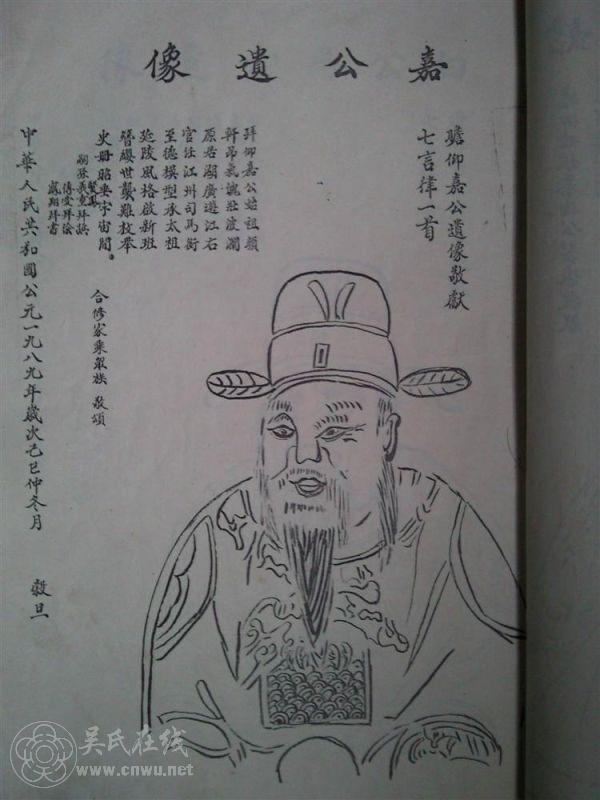 嘉公遺像
瞻仰嘉公遺像敬獻
七言律一首
拜仰嘉公始祖顏
軒昂氣魄壯波瀾
原居湖廣遊江右
官任江州司馬銜
至德模型承太祖
延陵風格啟新班
簪纓世襲難枚舉
史册昭垂宇宙間。
嗣孫
拜撰
傳愛拜繪
鳳翔拜書
合修家乘眾族 敬頌
中華人民共和國公元一九八九年歲次己巳仲冬月 穀旦
吴氏在线
www.cnwu.net